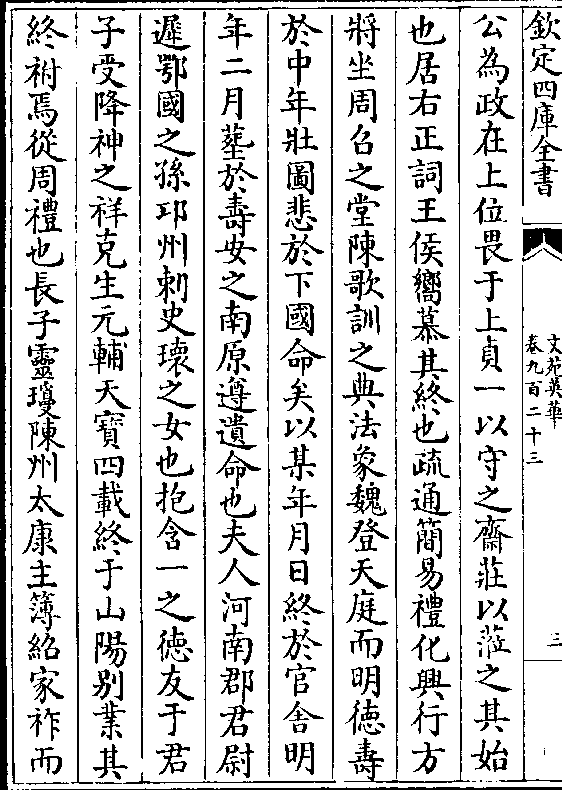 欽定四庫全書
文苑英華
卷九百二十三
三
公為政在上位畏于上貞一以守之齋莊以蒞之其始
也居右正詞王侯嚮慕其終也疏通簡易禮化興行方
將坐周召之堂陳歌訓之典法象魏登天庭而明徳壽
於中年壯圖悲於下國命矣以某年月日終於官舍明
年二月塟於壽安之南原遵遺命也夫人河南郡君尉
遲鄂國之孫邛州刺史瓌之女也抱含一之徳友于君
子受降神之祥克生元輔天寶四載終于山陽别業其
終祔焉從周禮也長子靈瓊陳州太康主簿紹家祚而